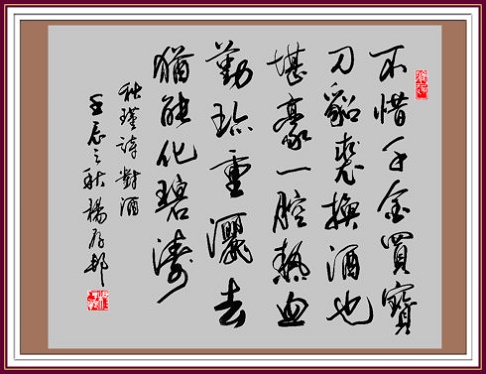 不惜千金買寶
刀貂裘換酒也
堪豪一腔熱血
勤珍重灑去
猶能化碧濤
秋瑾詩對酒
壬辰之秋楊存邦